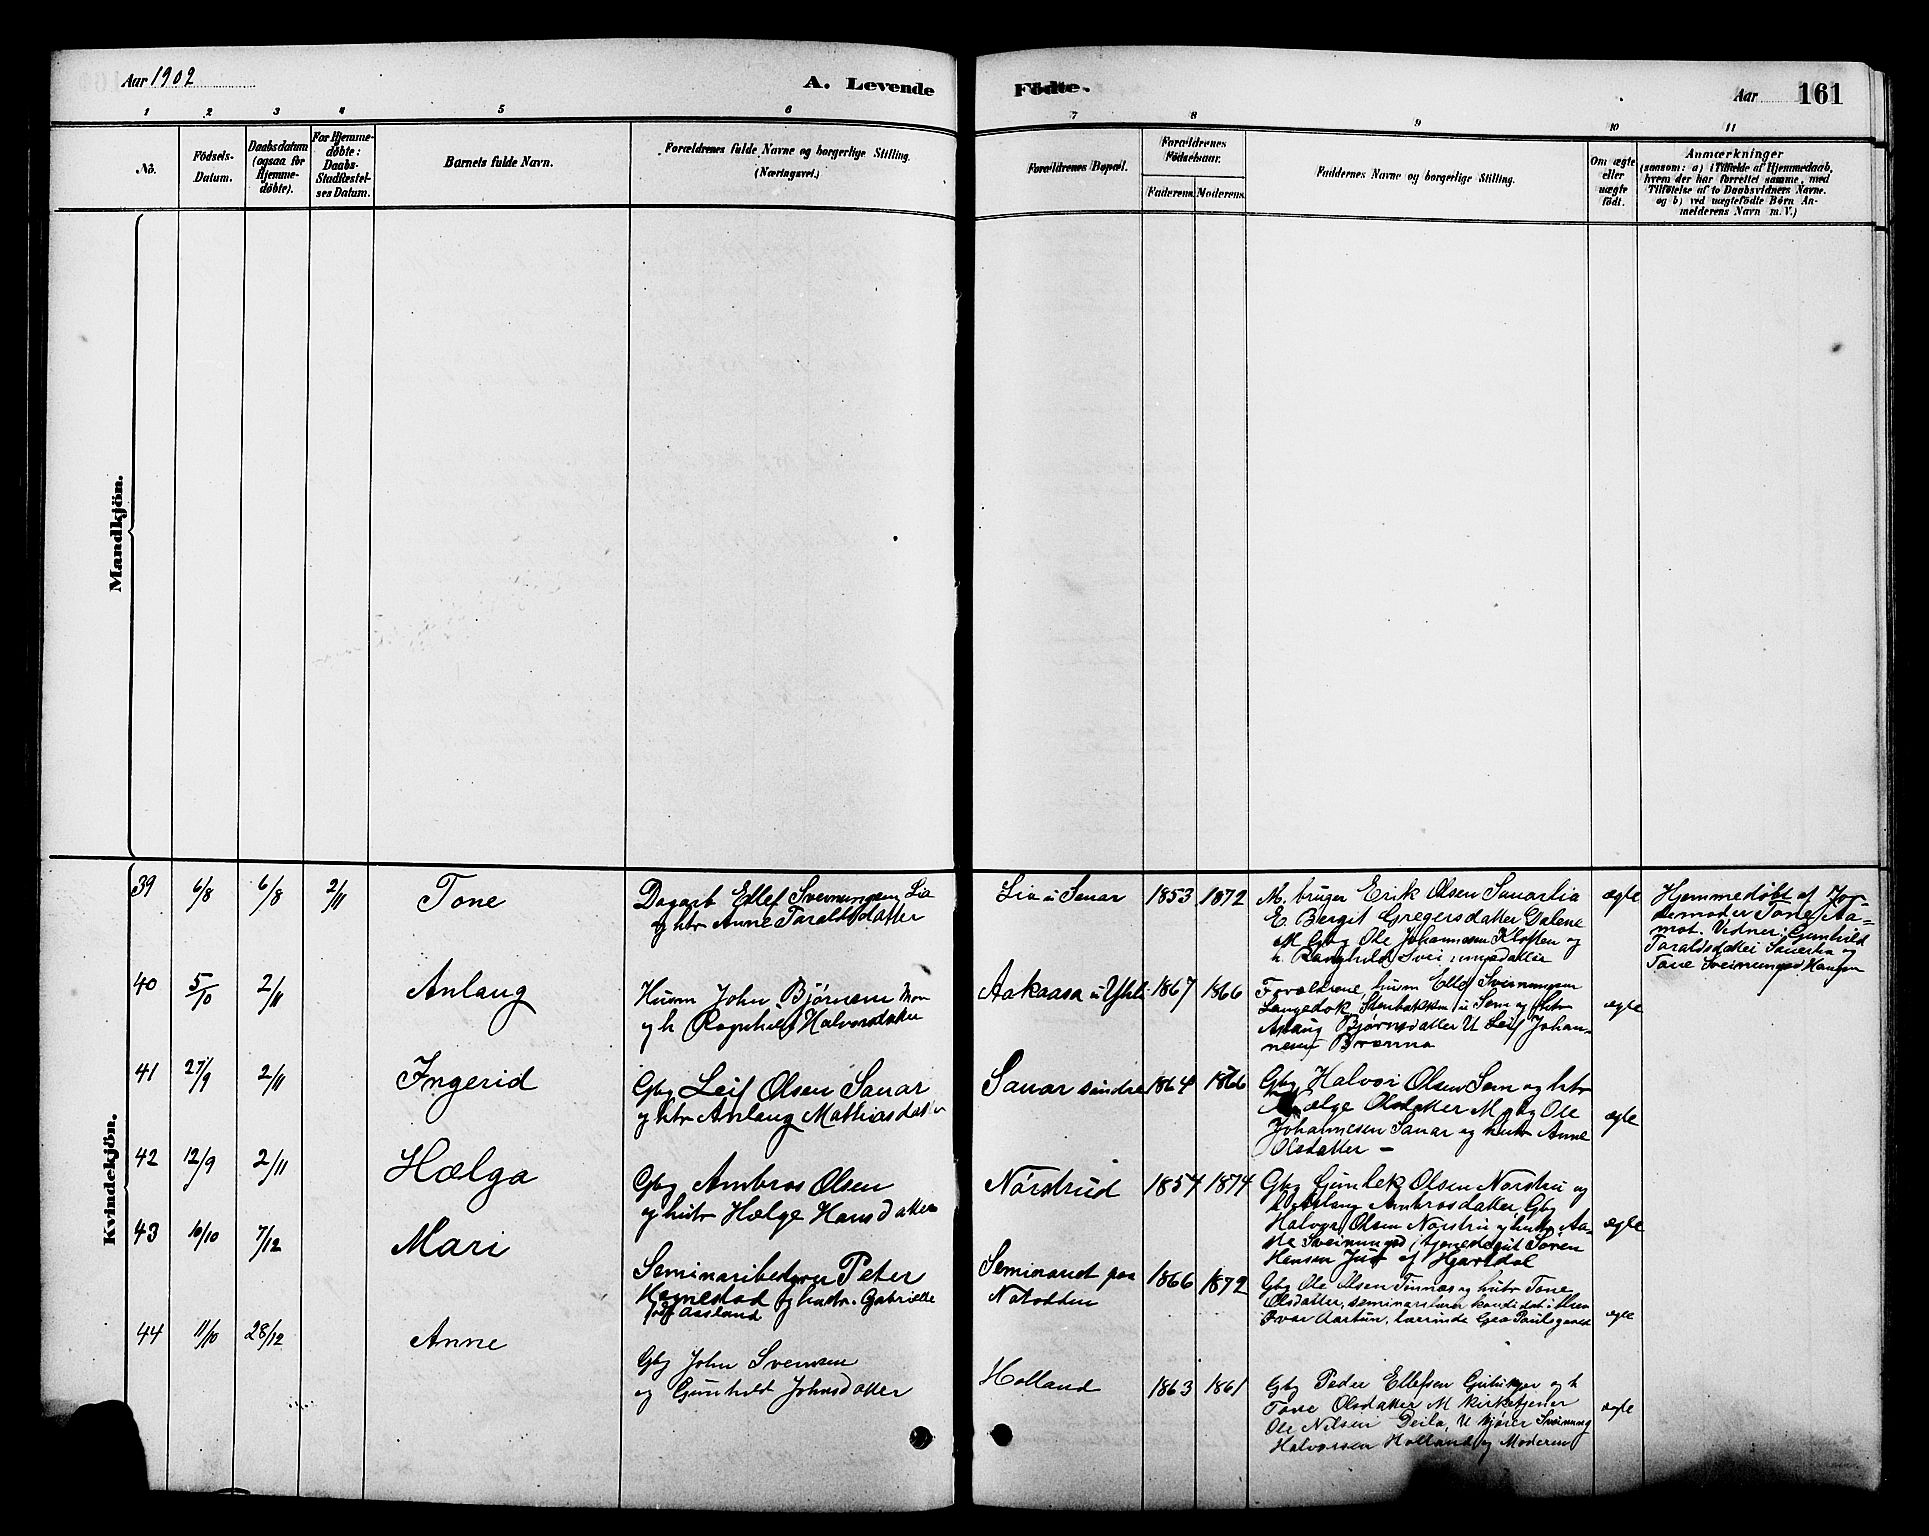 Aar 1902
A. Levende
Fødte.
Aar 161
1 2 3 4 5 6 7 8 9 10 11
No.
Fødsels-
Datum.
Daabsdatum
(ogsaa for
Hjemme-
døbte).
For Hjemme-
døbte:
Daabs-
Stadfæstel-
ses Datum.
Barnets fulde Navn.
Forældrenes fulde Navne og borgerlige Stilling.
(Næringsvei.)
Forældrenes Bopæl.
Forældrenes
Fødselsaar.
Faderens. Moderens.
Faddernes Navne og borgerlige Stilling.
Om ægte
eller
uægte
født.
Anmærkninger
(saasom: a) i Tilfælde af Hjemmedaab,
hvem der har forrettet samme, med
Tilføielse af to Daabsvidners Navne.
og b) ved uægtefødte Børn An-
melderens Navn m. V.)
Mandkjön.
Kvindekjön.
39 6/8 6/8 2/11 Tone
Dagarb Ellef Sveinungsen Lia
og htr Anne Taraldsdatter
Lia i Sauar 1853 1872
M. bruger Erik Olsen Sauarlia
E. Bergit Gregersdatter Dalene
Gbg Ole Johannesen Kloften og
h.
ægte
Hjemmedøbt af Jor-
demoder Tone Aa-
mot. Vidner: Gunhild
Taraldsdatter Sauerlia og
Tone Sveinungsd Haugen
40 5/10 2/11 Anlaug
Husm John Bjørnsen
og h Ragnhild Halvorsdatter
Aakaasa 1867 1866
Forældrene, husm Ellef Sveinungsen
Johan-
nesen
ægte
41 27/9 2/11 Ingerid
Gbg Leif Olsen Sauar
og htr Anlaug Mathiasdatter
Sauar søndre 1864 1866
Gbg Halvor Olsen Sem og htr
Helge Olsdatter M gbg Ole
Johannesen Sauar og hustr Anne
Olsdatter –
ægte
42 12/9 2/11 Hælga
Gbg Ambros Olsen
og hustr Hælge Hansdatter
Nørstrud 1854 1874
Gbg Gunlek Olsen Nørstru og
Aslaug Ambrosdatter, Gbg
Halvor Olsen Nørstru og hustr Aa-
Søren
Hansen Juf af Hjartdal
ægte
43 10/10 7/12 Mari
Seminariebestyrer Peter
Hognestad og hustr. Gabrielle
født Aasland
Seminaret paa
Notodden
1866 1872
Gbg Ole Olsen Tinnæs og hustr Tone
Olsdatter, seminarielærer
Ivar Aartun, lærerinde
ægte
44 11/10 28/12 Anne
Gbg John Svensen
og Gunhild Johnsdatter
Holland 1863 1861
Gbg Peder Ellefsen og h
Tone Olsdatter M kirketjener
Ole Nilsen Deila, U kjører Sveinung
Halvorsen Holland og Moderen
ægte